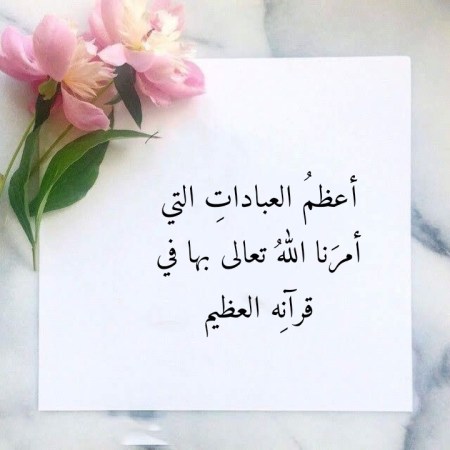 أعظمُ العباداتِ التي
أمرَنا اللهُ تعالى بها في
قرآنِه العظيم